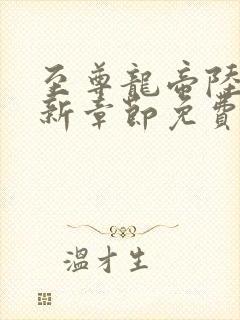 至尊龍帝陸
新章節免費
溫才生